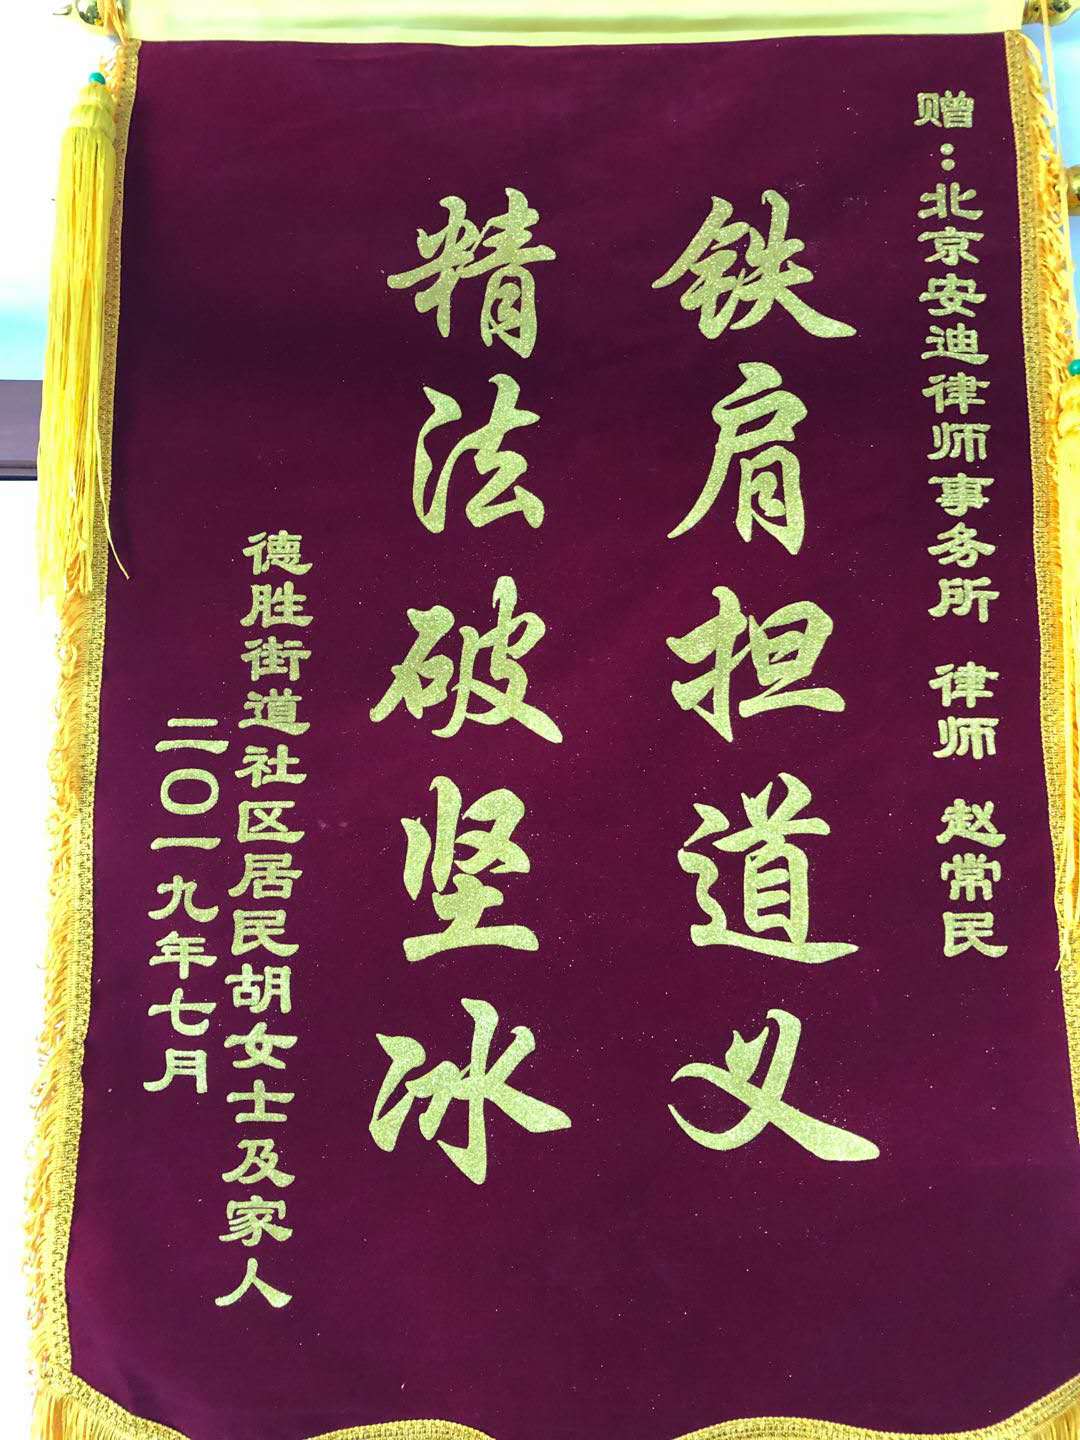 赠：北京安迪律师事务所 律师 赵常民
铁肩担道义
精法破坚冰
德胜街道社区居民胡女士及家人
二〇一九年七月